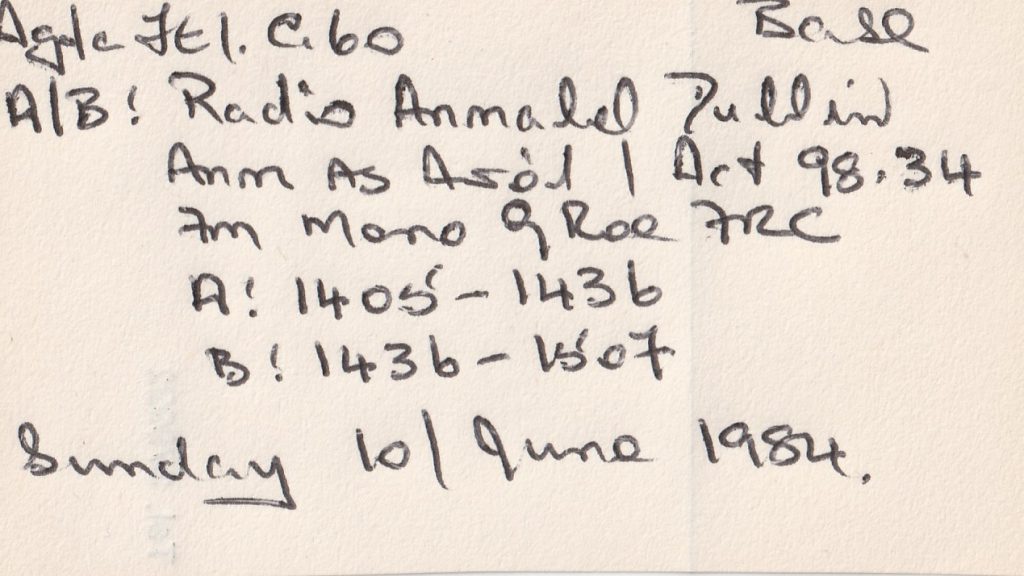 Agfa FE1. C.60 Base
A/B: Radio Annabel Dublin
Ann As As01 | Act 98.34
Fm Mono G Roe FRC
A: 1405 - 1436
B: 1436 - 1507
Sunday 10/June 1984.